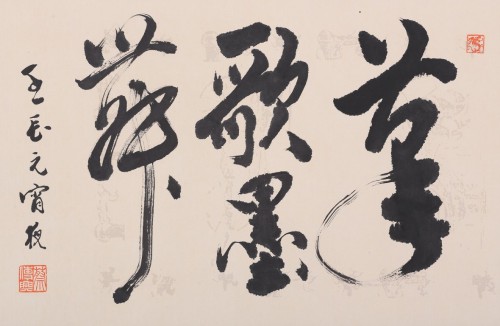 筆
歌墨
舞
壬辰元宵